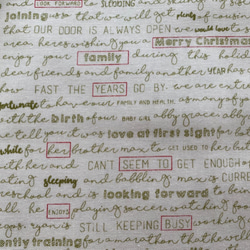 and LOOK FORWARD to SLEDDING and skiing or
joining that we will get plenty of
that OUR DOOR IS ALWAYS OPEN we would love to
area here wishing you a Merry Christmas
enjoy your family during this holiday
dear friends and family another YEAR has
how FAST THE YEARS GO BY. we are extre
fortunate to have our FAMILY AND HEALTH. as many of
with the birth of our BABY GIRL abby grace abby
to tell you it was love at first sight for
while for her brother max to GET USED TO her but
with her and CAN'T SEEM TO GET ENOUGH
eating sleeping and babbling max is curre
preschool and is looking forward to being
all he ENJOYS playing soccer watching foo
ryan is STILL KEEPING BUSY working
ently training for a marathon that he